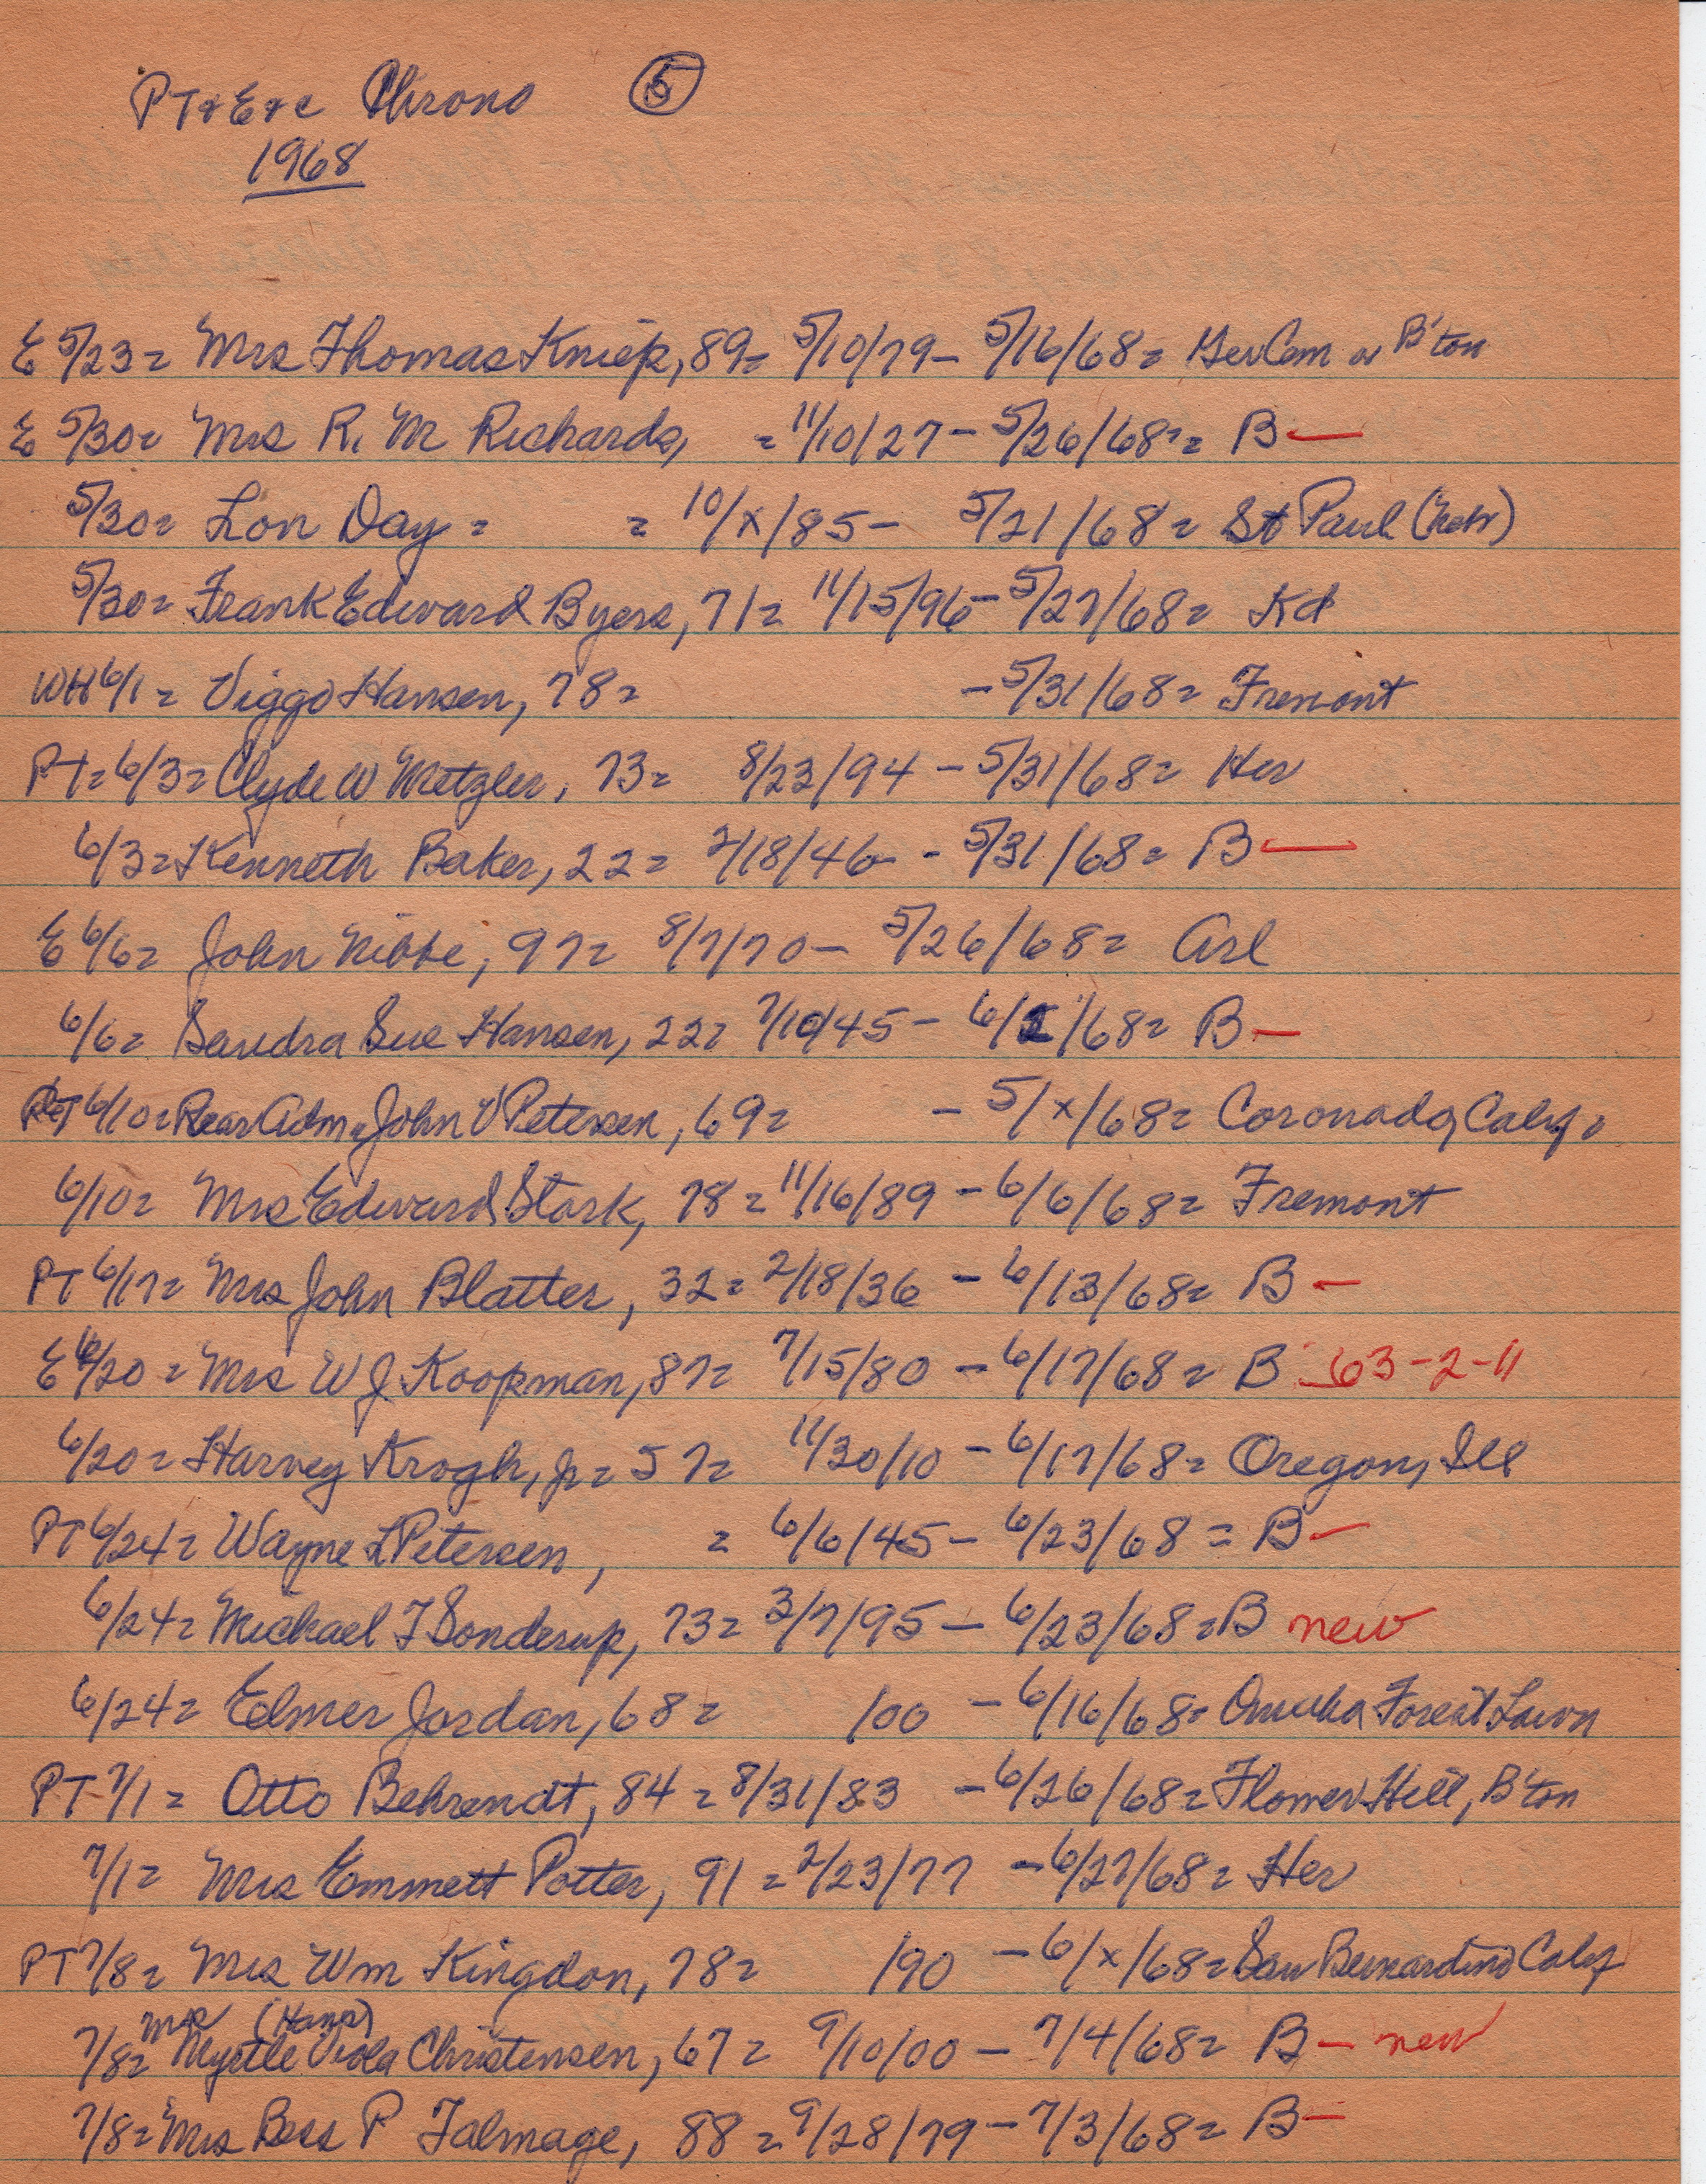 PT & E & c Chrono 5
1968
E 5/23 = Mrs Thomas Kniep, 89 = 5/10/79 - 5/16/68 = Ger Cem w B'ton
E 5/30 = Mrs R. M Richards, = 11/10/27 - 5/26/68 = B —
5/30 = Lon Day = = 10/x/85 - 5/21/68 = St Paul (Nebr)
5/30 = Frank Edward Byers, 71 = 11/15/96 - 5/27/68 = Kd
WH 6/1 = Viggo Hansen, 78 = - 5/31/68 = Fremont
PT = 6/3 = Clyde W Metzler, 73 = 8/23/94 - 5/31/68 = Her
6/3 = Kenneth Baker, 22 = 2/18/46 - 5/31/68 = B —
E 6/6 = John Nibbe, 97 = 8/7/70 - 5/26/68 = Arl
6/6 = Sandra Sue Hansen, 22 = 7/10/45 - 6/ /68 = B —
PT 6/10 = Rear Adm = John V Petersen, 69 = - 5/x/68 = Coronado, Calif.
6/10 = Mrs Edward Stork, 78 = 11/16/89 - 6/6/68 = Fremont
PT 6/17 = Mrs John Blatter, 32 = 2/18/36 - 6/13/68 = B —
E 6/20 = Mrs W J Koopman, 87 = 7/15/80 - 6/17/68 = B 63-2-11
6/20 = Harvey Krogh, Jr = 57 = 11/30/10 - 6/17/68 = Oregon, Ill
PT 6/24 = Wayne L Petersen, = 6/6/45 - 6/23/68 = B —
6/24 = Michael T Sonderup, 73 = 3/7/95 - 6/23/68 = B new
6/24 = Elmer Jordan, 68 = /00 - 6/16/68 = Omaha Forest Lawn
PT 7/1 = Otto Behrendt, 84 = 8/31/83 - 6/26/68 = Flower Hill, B'ton
7/1 = Mrs Emmett Potter, 91 = 2/23/77 - 6/27/68 = Her
PT 7/8 = Mrs Wm Kingdon, 78 = /90 - 6/x/68 = San Bernardino Calif
Mrs (Hans)
7/8 = Myrtle Viola Christensen, 67 = 9/10/00 - 7/4/68 = B — new
7/8 = Mrs Bess P Talmage, 88 = 9/28/79 - 7/3/68 = B —